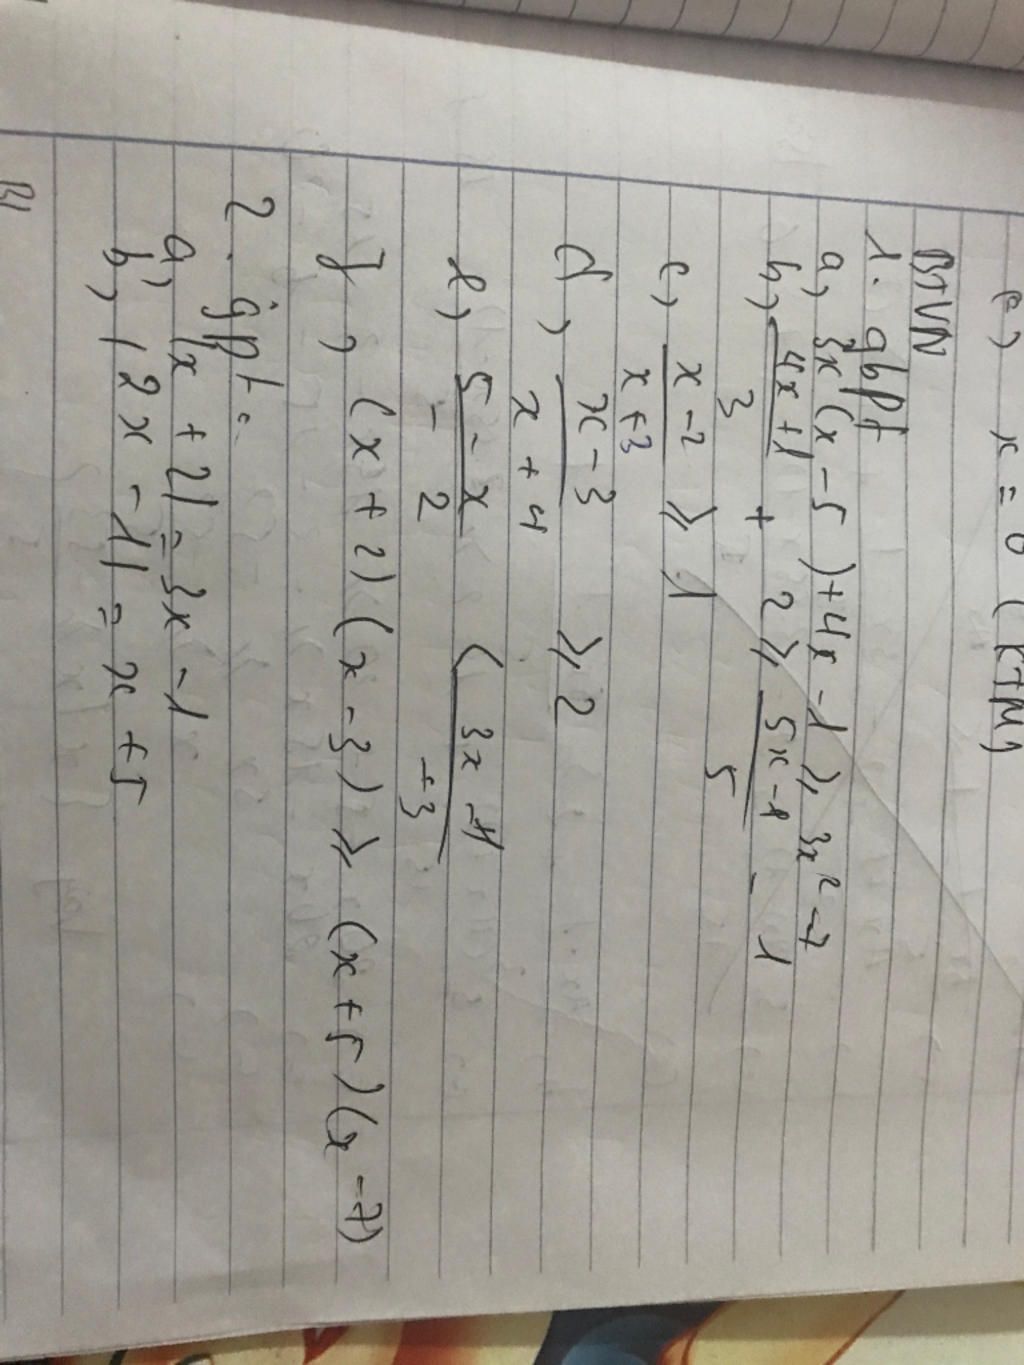 e) x = 0 (KTM)
BTVN
1. gbpt
a, 3x(x-5)+4x-1 ≥ 3x²-7
b, (4x+1)/3 + 2 ≥ (5x-1)/5 - 1
c, (x-2)/(x+3) ≥ 1
d, (x-3)/(x+4) ≥ 2
e, (5-x)/-2 < (3x-4)/-3
f, (x+2)(x-3) ≥ (x+5)(x-7)
2. gpt:
a, |x+2|=3x-1
b, |2x-1|=x+5